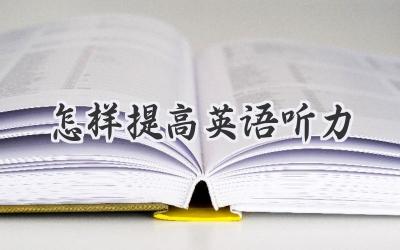 怎样提高英语听力